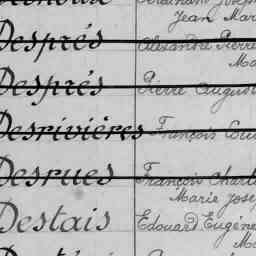 Jean Mar
Després Alexandre Pierre
Ma
Després Pierre August
Desrivières François Lou
Desrues François Charl
Marie Jose
Destais Edouard Eugène
Ma